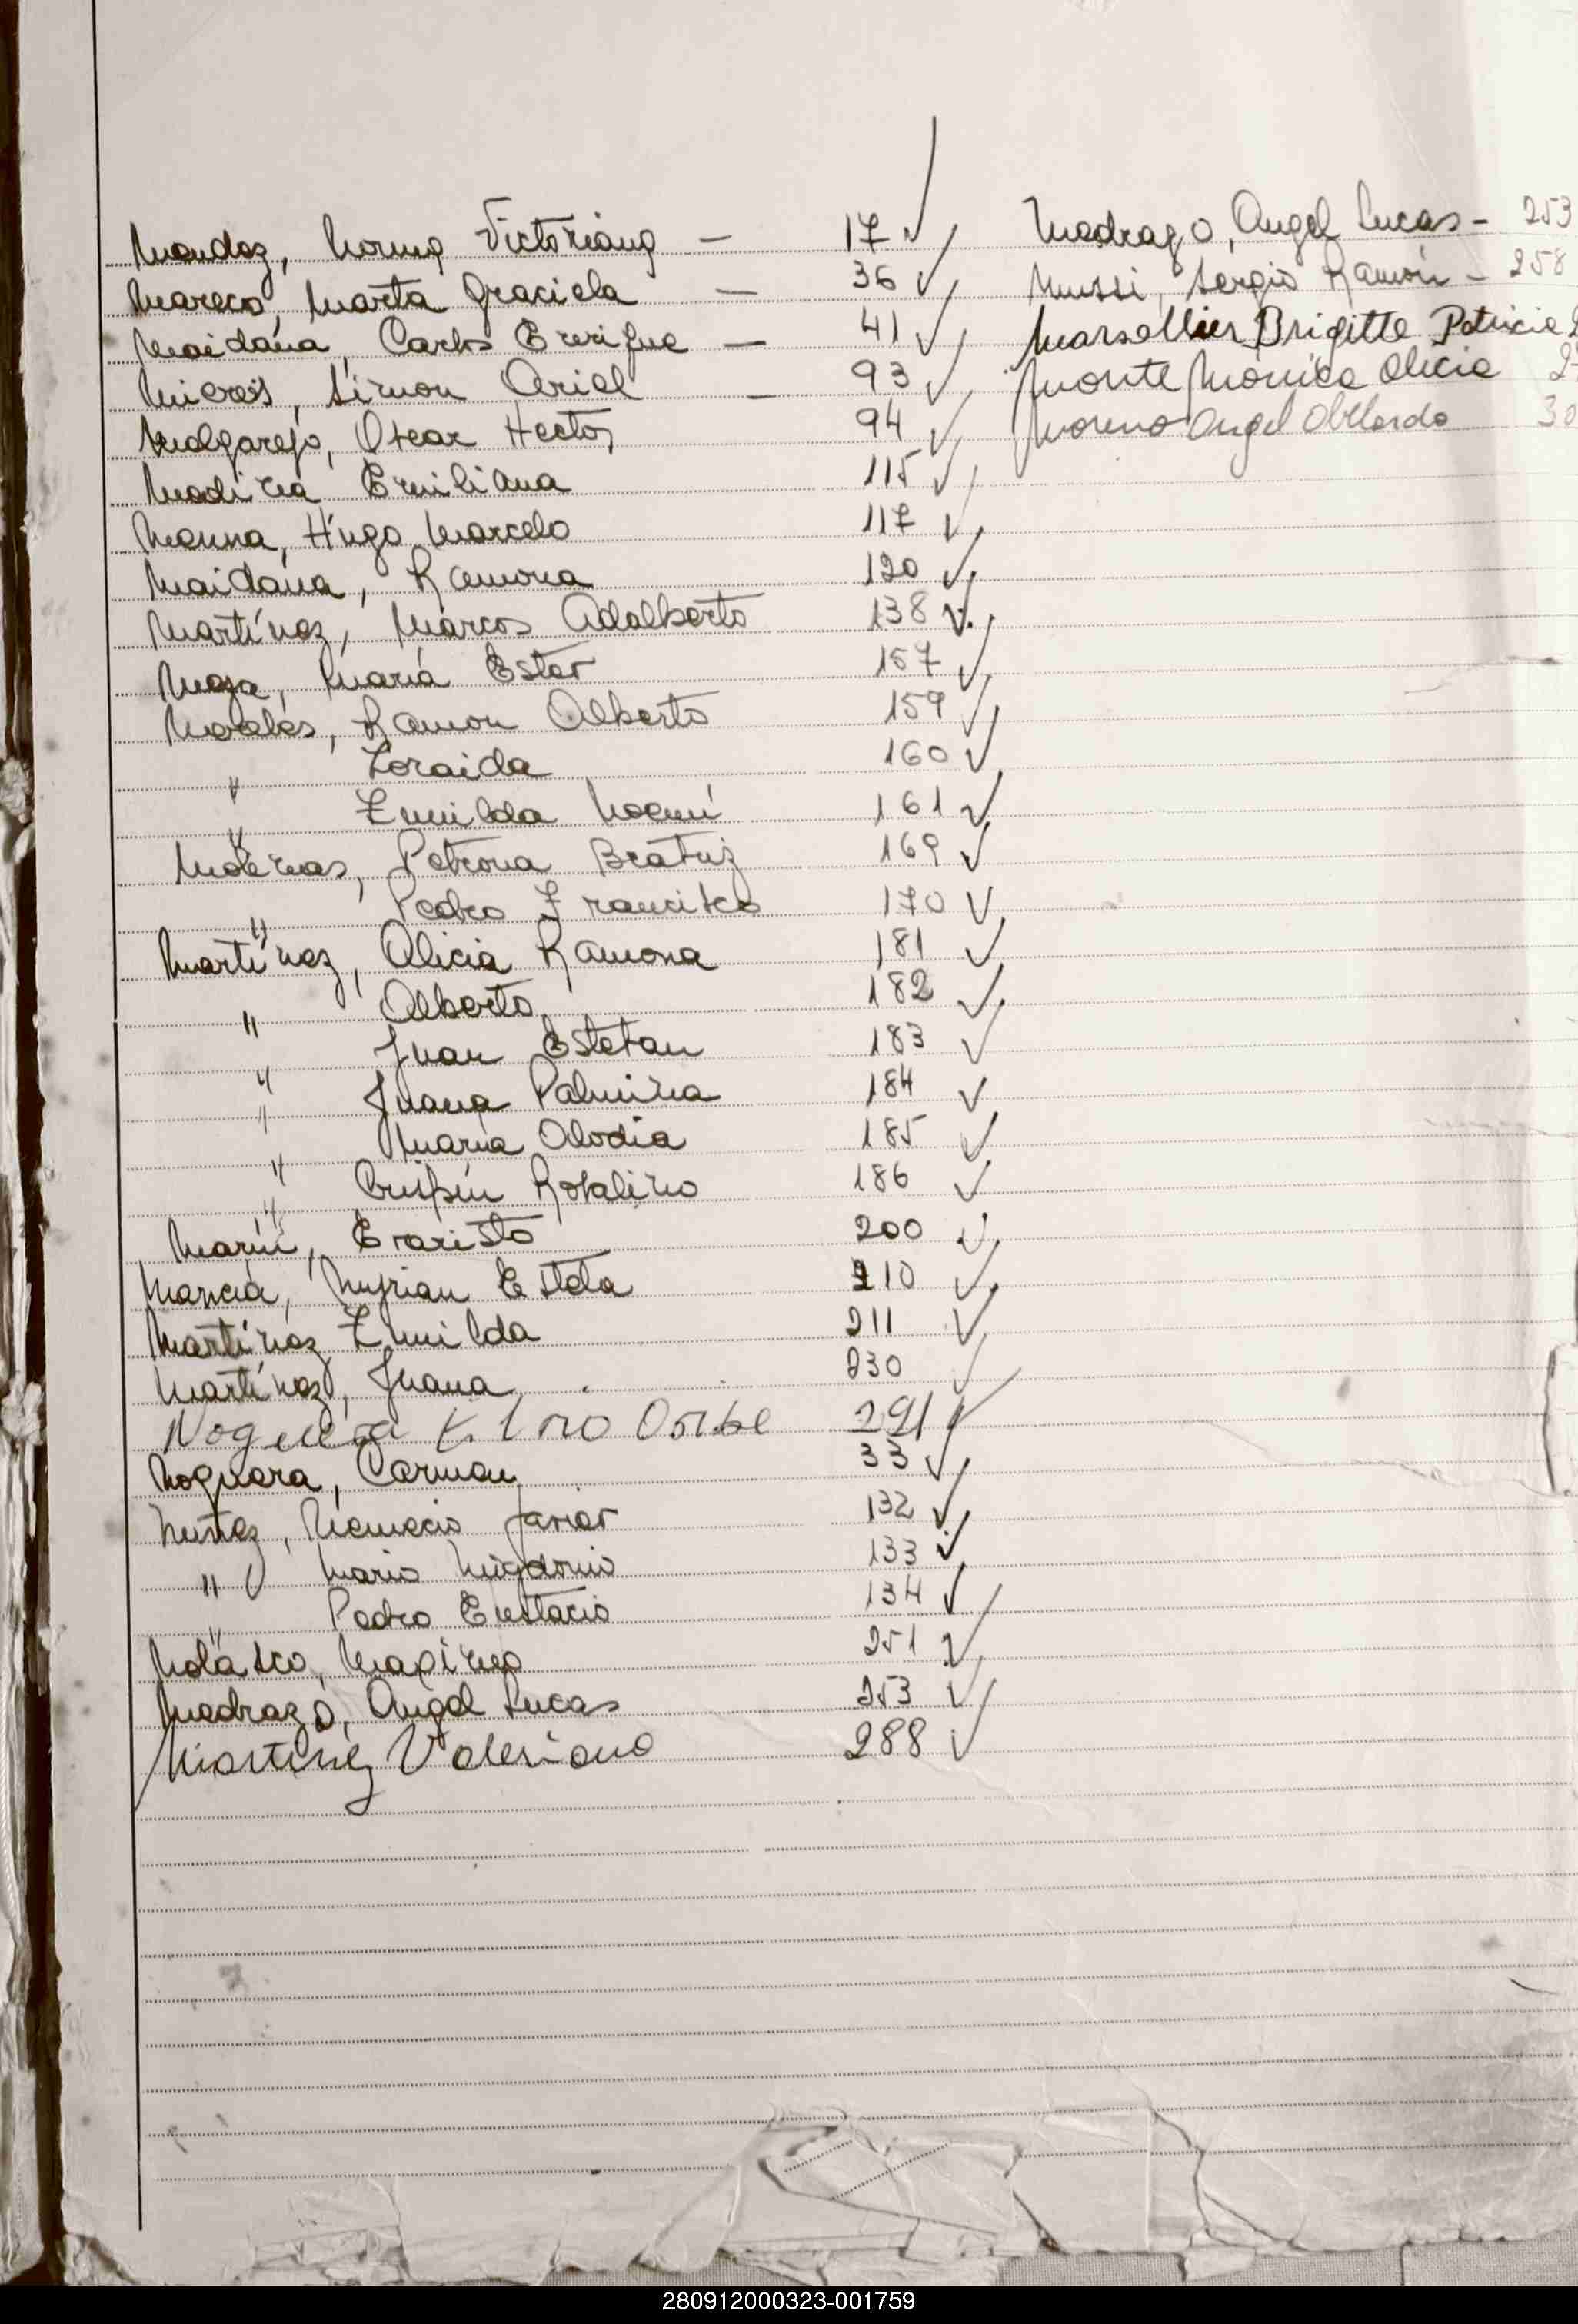 Mendez, Norma Victoriana — 17 ✓
Mareco, Marta Graciela — 36 ✓
Maidana, Carlos Enrique — 41 ✓
Mieres, Simon Ariel — 93 ✓
Melgarejo, Oscar Hector 94 ✓
Medina Emiliana 115 ✓
Manna, Hugo Marcelo 117 ✓
Maidana, Ramona 120 ✓
Martínez, Marcos Adalberto 138 ✓
Meza, María Ester 157 ✓
Morales, Ramon Alberto 159 ✓
" Zoraida 160 ✓
" Zunilda Noemí 161 ✓
Molinas, Petrona Beatriz 169 ✓
" Pedro Francisco 170 ✓
Martínez, Alicia Ramona 181 ✓
" Alberto 182 ✓
" Juan Esteban 183 ✓
" Juana Palmira 184 ✓
" María Clodia 185 ✓
" Crispín Rosalino 186 ✓
Marín, Evaristo 200 ✓
Mancia, Myrian Estela 210 ✓
Martínez Zunilda 211 ✓
Martínez, Juana 230 ✓
Noguera 291 ✓
Noguera, Carmen 33 ✓
Nuñez, Nemecio Javier 132 ✓
" Mario Migdonio 133 ✓
" Pedro Eustacio 134 ✓
Nolasco, Maximo 251 ✓
Medrazo, Angel Lucas 253 ✓
Martinez Valeriano 288 ✓
Medrazo, Angel Lucas - 253
Mussi, Sergio Ramón - 258
Marsellier Brigitte Patricia
Monte Mónica Alicia
Moreno Angel Abelardo
280912000323-001759